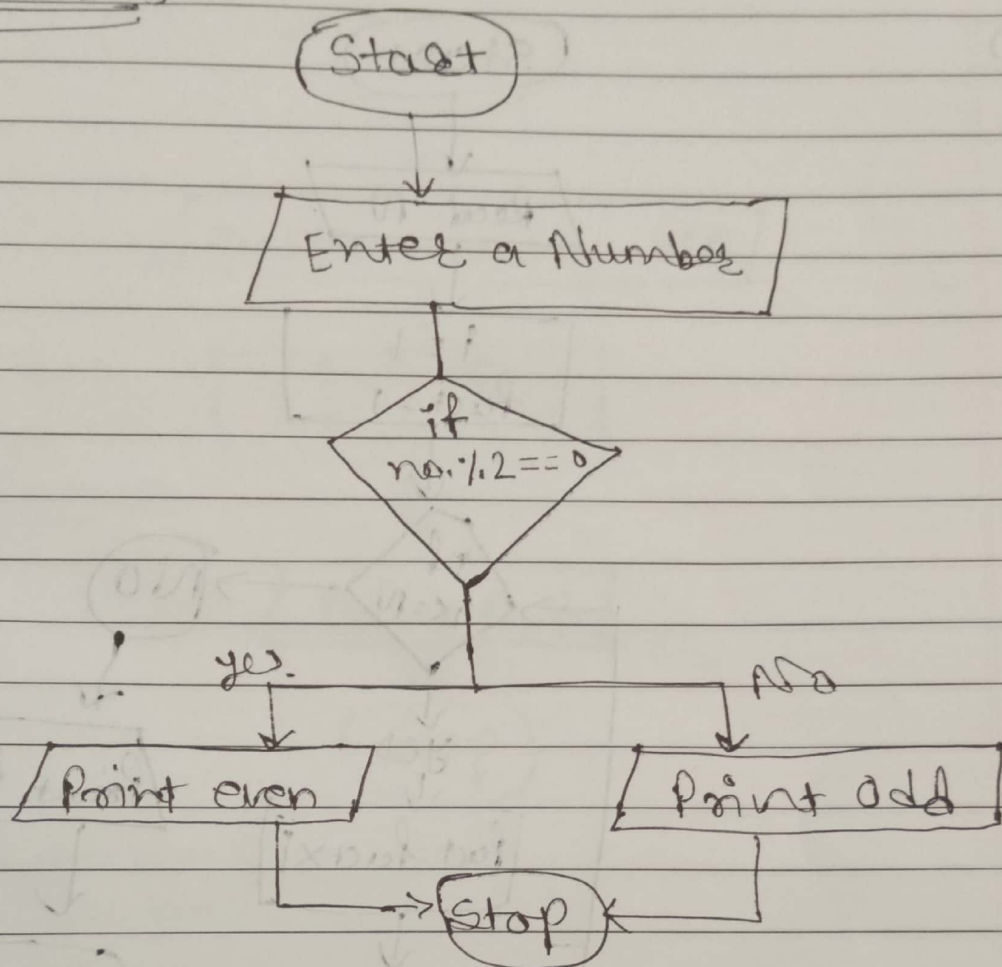 Start
Enter a Number
if
no.%2==0
yes.
No
Print even
Print odd
Stop